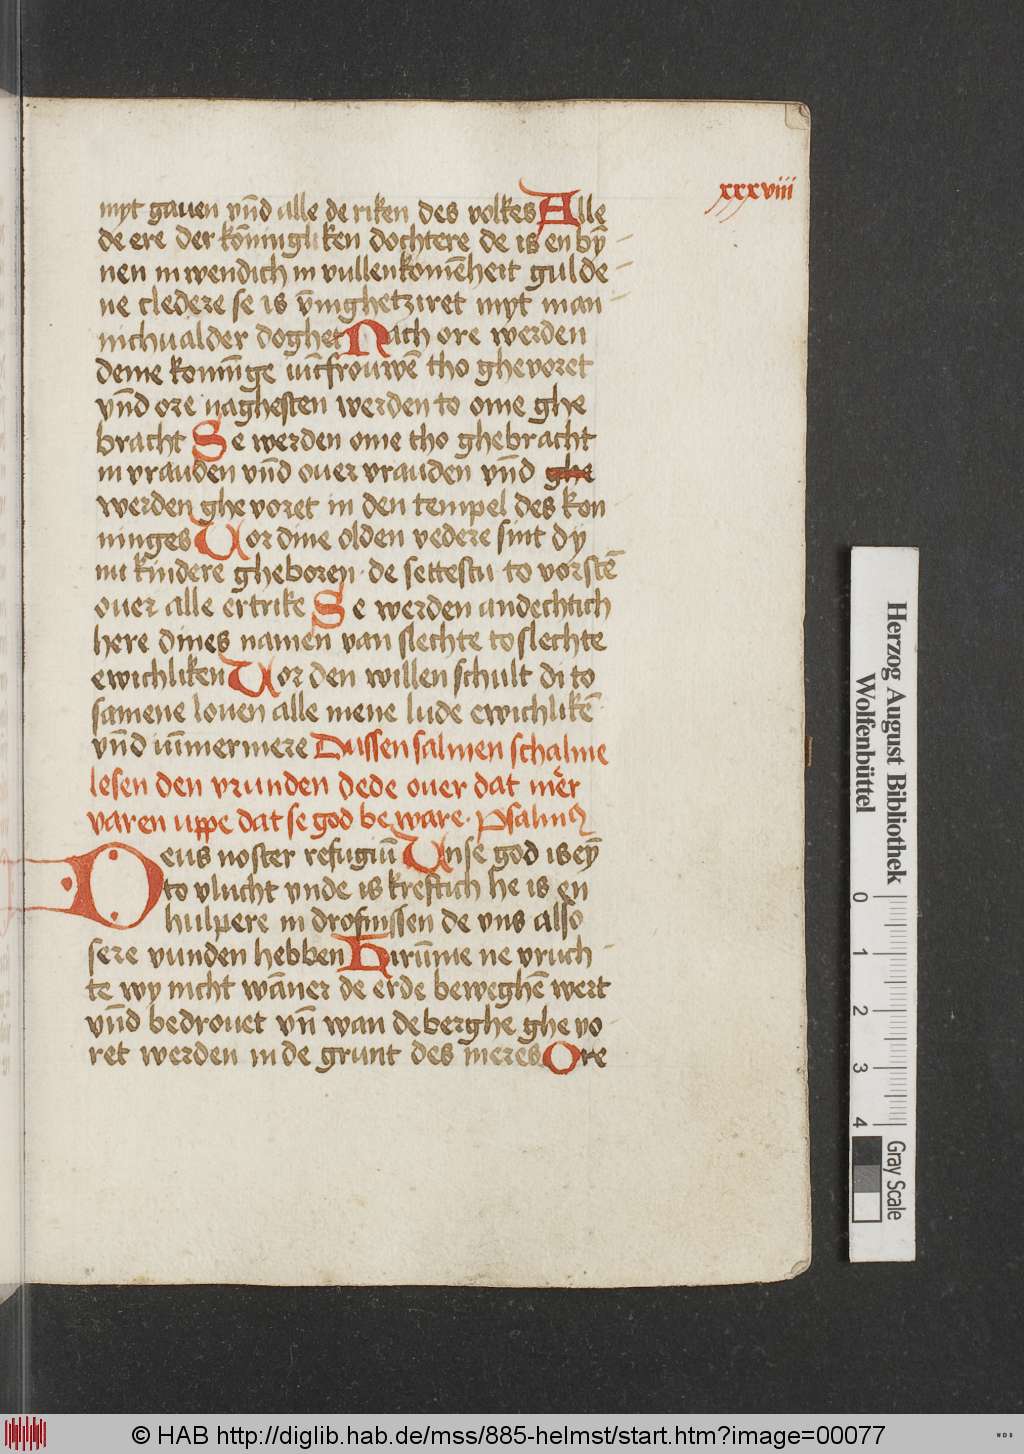 xxxviii
myt gauen vn̄d alle de riken des volkes Alle
de ere der kōningliken dochtere de is en bȳ
nen in wendich in vullenkomēheit gulde
ne cledere se is v̄mghetziret myt man
nichualder doghet Nach ore werden
deme konni̅ge iu̅cfrouwē tho ghevoret
vn̄d ore naghesten werden to ome ghe
bracht Se werden ome tho ghebracht
in vrauden vn̄d ouer vrauden vn̄d ghe
werden ghe voret in den tempel des kon
ninges Vor dine olden vedere sint dy
nu kindere gheboren · de settestu to vorstē
ouer alle ertrike Se werden andechtich
here dines namen van slechte to slechte
ewichliken Vor den willen schult di to
samene louen alle mene lude ewichlikē
vn̄d iu̅mermere Dussen salmen schalme
lesen den vrunden dede ouer dat mēr
varen uppe dat se god be ware · Psalmꝰ
Deus noster refugiu̅ Vnse god is eȳ
to vlucht vnde is kreftich he is en
hulpere in drofnissen de vns also
sere vunden hebben Hiru̅me ne vruch
te wy nicht wāner de erde beweghē wert
vn̄d bedrouet vn̄ wan de berghe ghe vo
ret werden in de grunt des meres Ore
Herzog August Bibliothek
Wolfenbüttel
0 1 2 3 4
Gray Scale
© HAB http://diglib.hab.de/mss/885-helmst/start.htm?image=00077